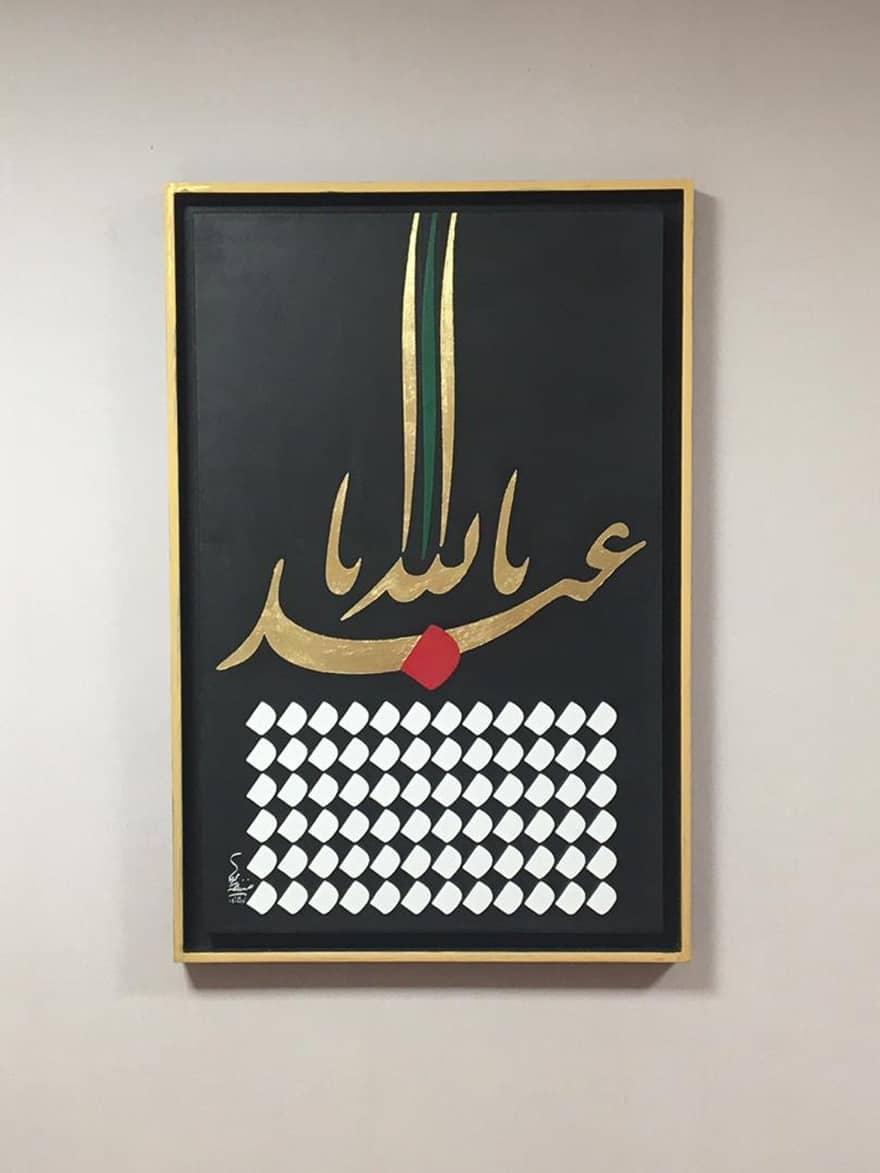 یا ابا عبدالله